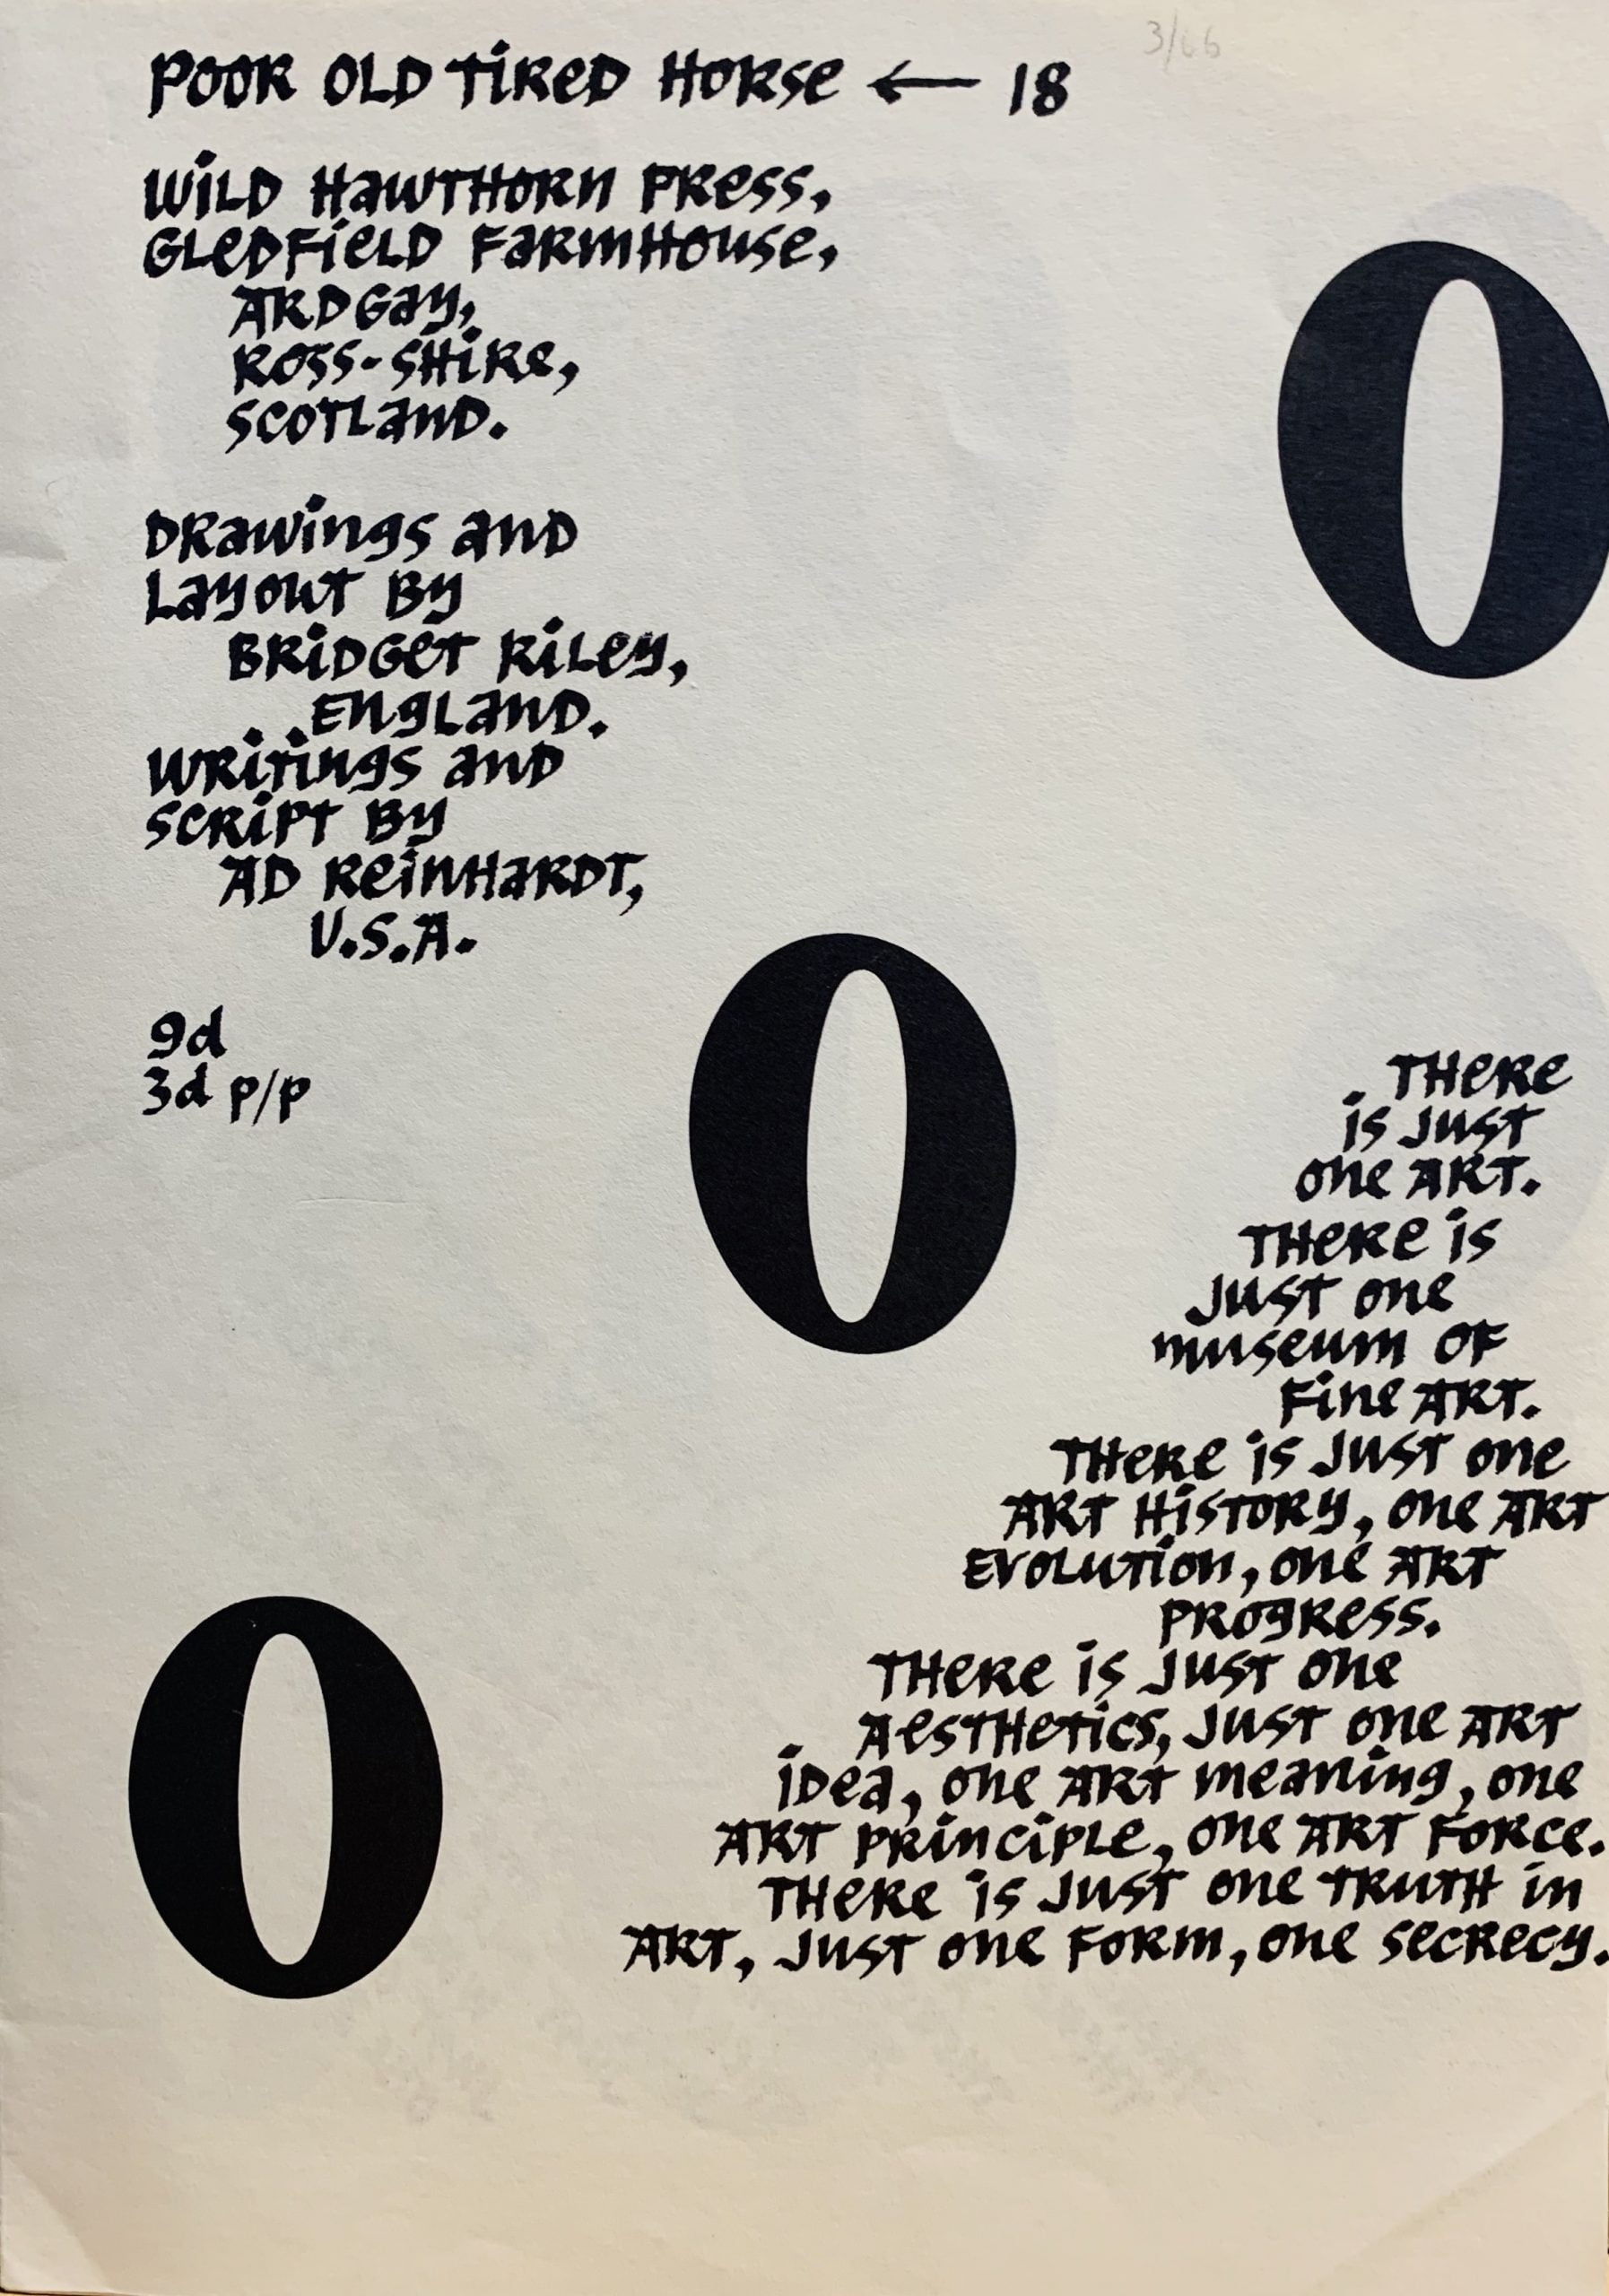 3/66
POOR OLD TIRED HORSE ← 18
WILD HAWTHORN PRESS,
GLEDFIELD FARMHOUSE,
ARDGAY,
ROSS-SHIRE,
SCOTLAND.
DRAWINGS AND
LAYOUT BY
BRIDGET RILEY,
ENGLAND.
WRITINGS AND
SCRIPT BY
AD REINHARDT,
U.S.A.
9d
3d p/p
O
O
O
THERE
IS JUST
ONE ART.
THERE IS
JUST ONE
MUSEUM OF
FINE ART.
THERE IS JUST ONE
ART HISTORY, ONE ART
EVOLUTION, ONE ART
PROGRESS.
THERE IS JUST ONE
AESTHETICS, JUST ONE ART
IDEA, ONE ART MEANING, ONE
ART PRINCIPLE, ONE ART FORCE.
THERE IS JUST ONE TRUTH IN
ART, JUST ONE FORM, ONE SECRECY.